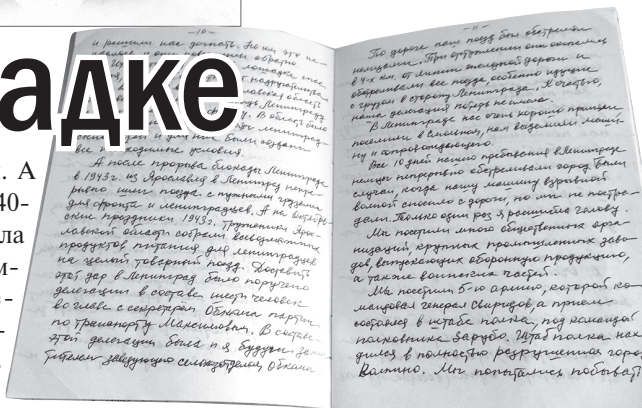 адке
. А
40-
ла
м-
е-
-
- 10 -
и решили нас догнать. Но им это не
обратно
Ленинграду
В области было
ленинград-
были созданы
все необходимые условия.
А после прорыва блокады Ленинграда
в 1943г. из Ярославля в Ленинград непре-
рывно шли поезда с нужными грузами
для фронта и ленинградцев. А на октябрь-
ские праздники 1943г. труженики Яро-
славской области собрали всевозможных
продуктов питания для ленинградцев
на целый товарный поезд. Доставить
этот дар в Ленинград было поручено
делегации в составе шести человек
во главе с секретарем Обкома партии
по транспорту Максимовым. В составе
этой делегации была и я, будучи заме-
стителем заведующего сельхозотделом Обкома
- 11 -
По дороге наш поезд был обстрелян
немцами. При отступлении они окопались
в 4-х км. от линии железной дороги и
обстреливали все поезда, особенно идущие
с грузом в сторону Ленинграда. К счастью,
наша делегация победы не
В Ленинграде нас очень хорошо приняли
поселили в Смольном, нам выделили маши-
ну и сопровождающего.
Все 10 дней нашего пребывания в Ленинграде
немцы непрерывно обстреливали город. Были
случаи, когда нашу машину взрывной
волной сносило с дороги, но мы не постра-
дали. Только один раз я расшибла голову.
Мы посетили много общественных орга-
низаций, крупных промышленных заво-
дов, выпускающих оборонную продукцию,
а также воинских частей.
Мы посетили 5-ю армию, которой ко-
мандовал генерал Свиридов, а прием
состоялся в штабе полка, под командой
полковника Зарубо. Штаб полка нахо-
дился в полностью разрушенном городе
Колпино. Мы попытались побывать